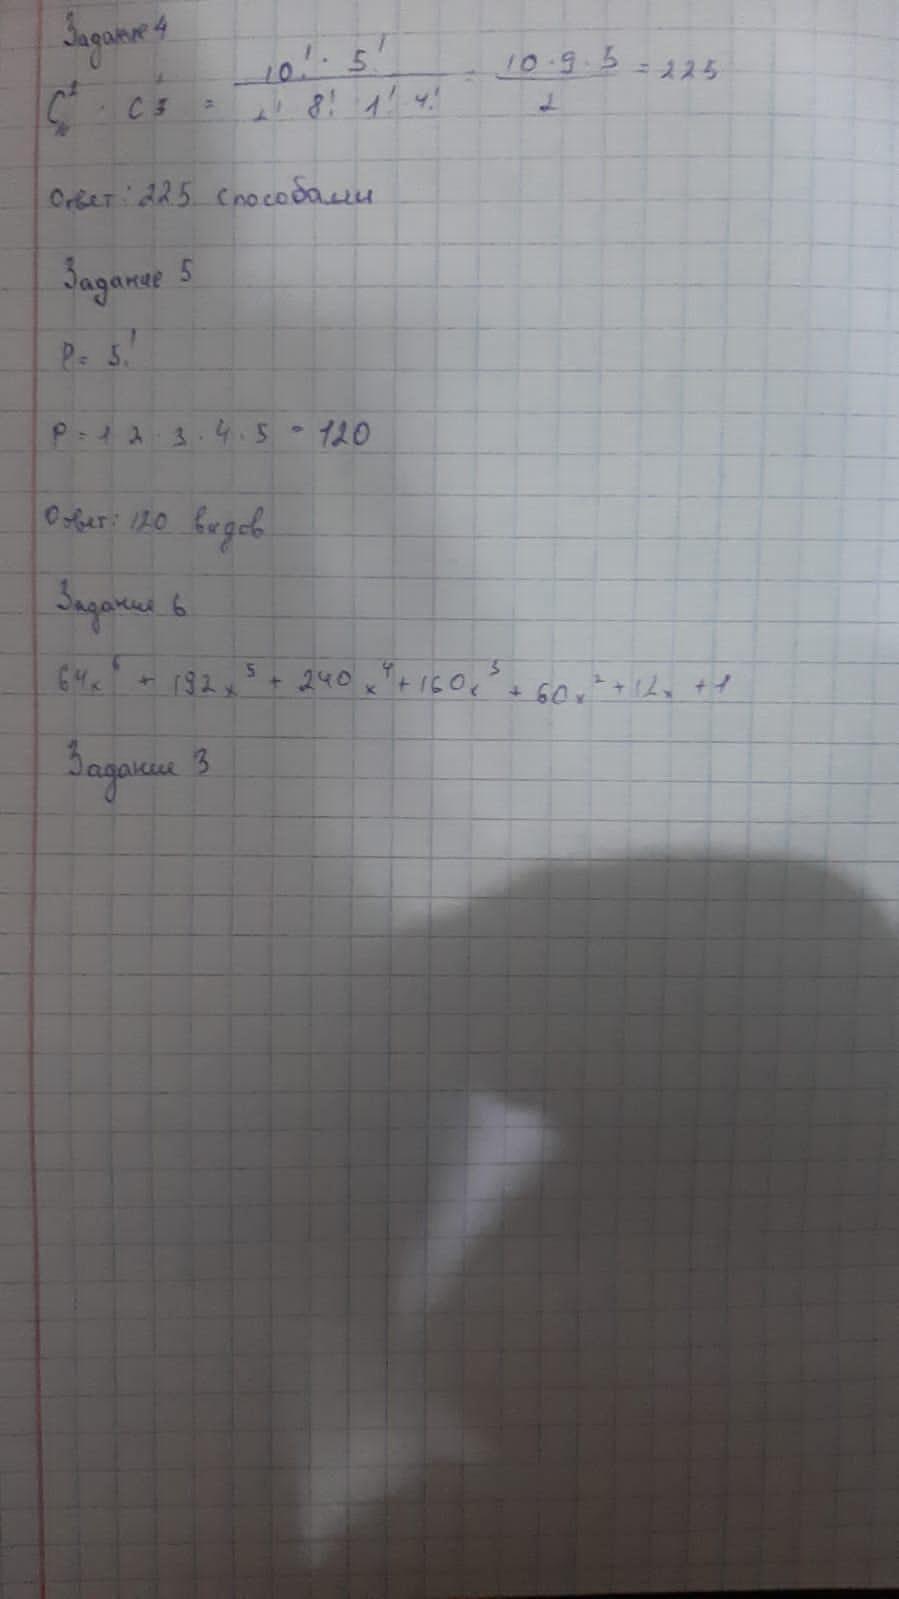 Задание 4
C²₁₀ · C¹₅ = 10! · 5! / 2! 8! 1! 4! = 10 · 9 · 5 / 2 = 225
Ответ: 225 способами
Задание 5
P = 5!
P = 1 · 2 · 3 · 4 · 5 = 120
Ответ: 120 видов
Задание 6
64x⁶ + 192x⁵ + 240x⁴ + 160x³ + 60x² + 12x + 1
Задание 3